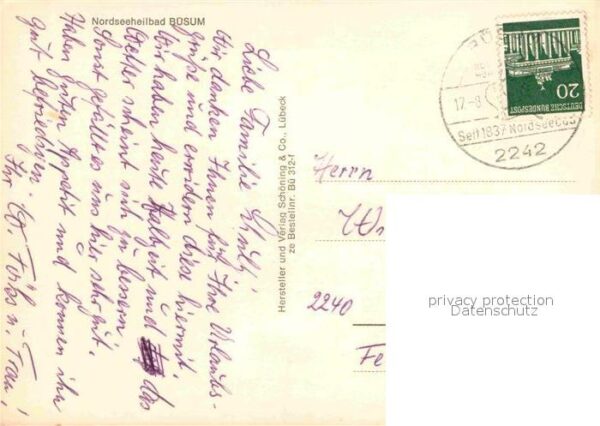 Nordseeheilbad BÜSUM
Liebe Familie
Wir danken Ihnen für Ihre Urlaubs-
grüße und erwidern diese hiermit.
Wir haben heute Halbzeit und das
Wetter scheint sich zu bessern.
Sonst gefällt es uns hier sehr gut.
Haben guten Appetit und können ihn
gut befriedigen. Ihr
u. Frau!
Hersteller und Verlag Schöning & Co., Lübeck
ze Bestellnr. Bü 312-f
DEUTSCHE BUNDESPOST
20
17.-8
Seit 1837 Nordseebad
2242
Herrn
2240
Fe
privacy protection
Datenschutz